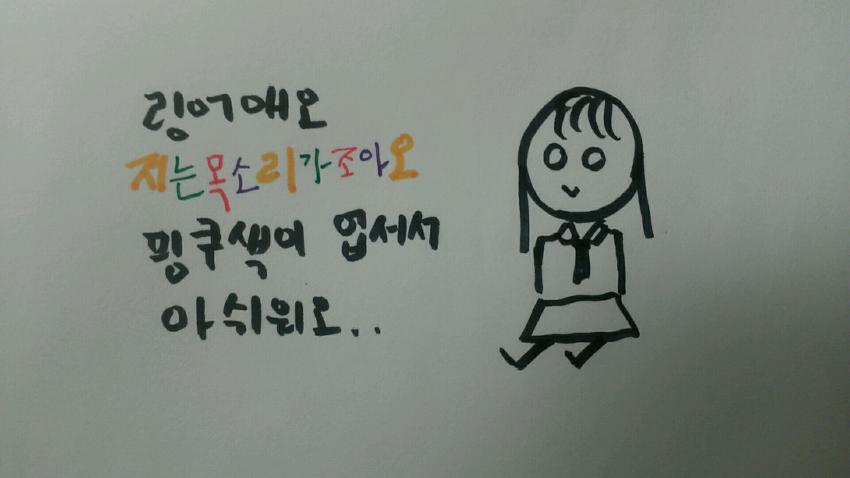 링어애오
저는목소리가조아오
핑쿠색이 업세서
아쉬워오..